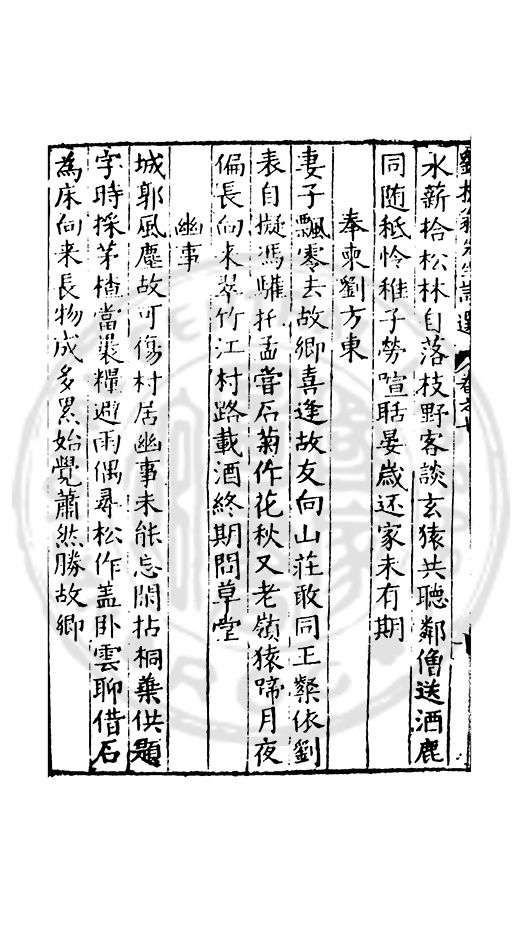 水薪拾松林自落枝野客談玄猿共聽鄰僧送酒鹿
同随秪怜稚子勞喧聒晏歳还家未有期
奉柬劉方東
妻子飄零去故鄉喜逢故友向山莊敢同王粲依劉
表自擬馮驩托孟嘗石菊作花秋又老嶺猿啼月夜
偏長向来翠竹江村路載酒終期問草堂
幽事
城郭風塵故可傷村居幽事未能忘閑拈桐葉供題
字時採茅楂當裝糧避雨偶尋松作盖卧雲聊借石
為床向来長物成多累始覺蕭然勝故鄉